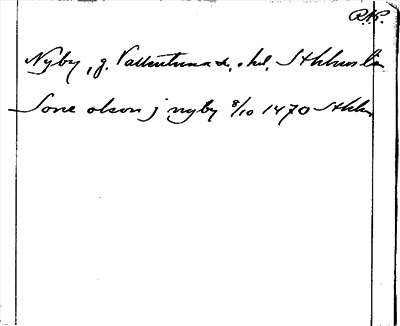 RAP.
Nyby, g. Vallentuna s., hd, Sthlms län
Sone olson j nyby 8/10 1470 Sthlm